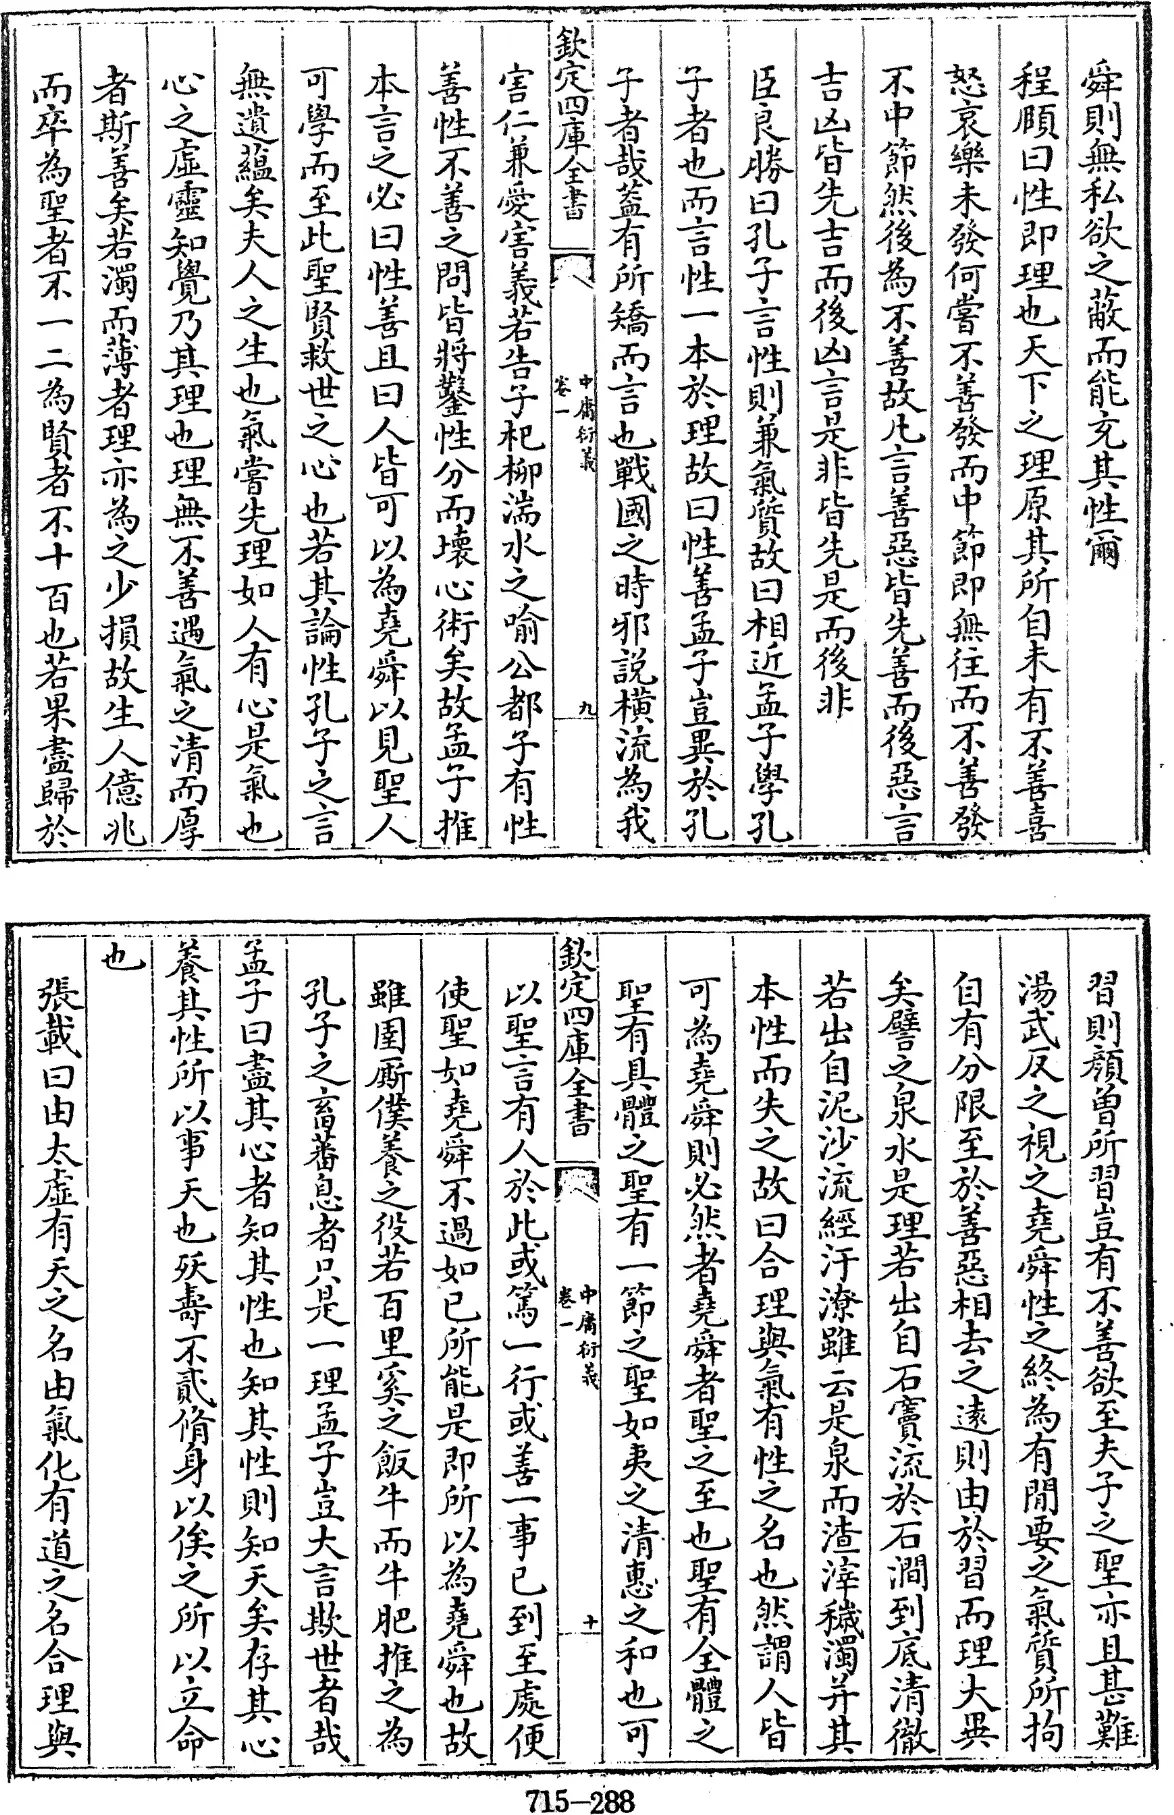 舜則無私欲之蔽而能充其性爾
程頤曰性即理也天下之理原其所自未有不善喜
怒哀樂未發何嘗不善發而中節即無往而不善發
不中節然後為不善故凡言善惡皆先善而後惡言
吉凶皆先吉而後凶言是非皆先是而後非
臣良勝曰孔子言性則兼氣質故曰相近孟子學孔
子者也而言性一本於理故曰性善孟子豈異於孔
子者哉蓋有所矯而言也戰國之時邪説橫流為我
欽定四庫全書
中庸衍義
卷一
九
害仁兼愛害義若告子杞柳湍水之喻公都子有性
善性不善之問皆將鑿性分而壞心術矣故孟子推
本言之必曰性善且曰人皆可以為堯舜以見聖人
可學而至此聖賢救世之心也若其論性孔子之言
無遺藴矣夫人之生也氣嘗先理如人有心是氣也
心之虛靈知覺乃其理也理無不善遇氣之清而厚
者斯善矣若濁而薄者理亦為之少損故生人億兆
而卒為聖者不一二為賢者不十百也若果盡歸於
習則顏曾所習豈有不善欲至夫子之聖亦且甚難
湯武反之視之堯舜性之終為有間要之氣質所拘
自有分限至於善惡相去之遠則由於習而理大異
矣譬之泉水是理若出自石竇流於石澗到底清徹
若出自泥沙流經汙潦雖云是泉而渣滓穢濁并其
本性而失之故曰合理與氣有性之名也然謂人皆
可為堯舜則必然者堯舜者聖之至也聖有全體之
聖有具體之聖有一節之聖如夷之清惠之和也可
欽定四庫全書
中庸衍義
卷一
十
以聖言有人於此或篤一行或善一事已到至處便
使聖如堯舜不過如已所能是即所以為堯舜也故
雖圉厮僕養之役若百里奚之飯牛而牛肥推之為
孔子之畜蕃息者只是一理孟子豈大言欺世者哉
孟子曰盡其心者知其性也知其性則知天矣存其心
養其性所以事天也殀壽不貳脩身以俟之所以立命
也
張載曰由太虛有天之名由氣化有道之名合理與
715-288